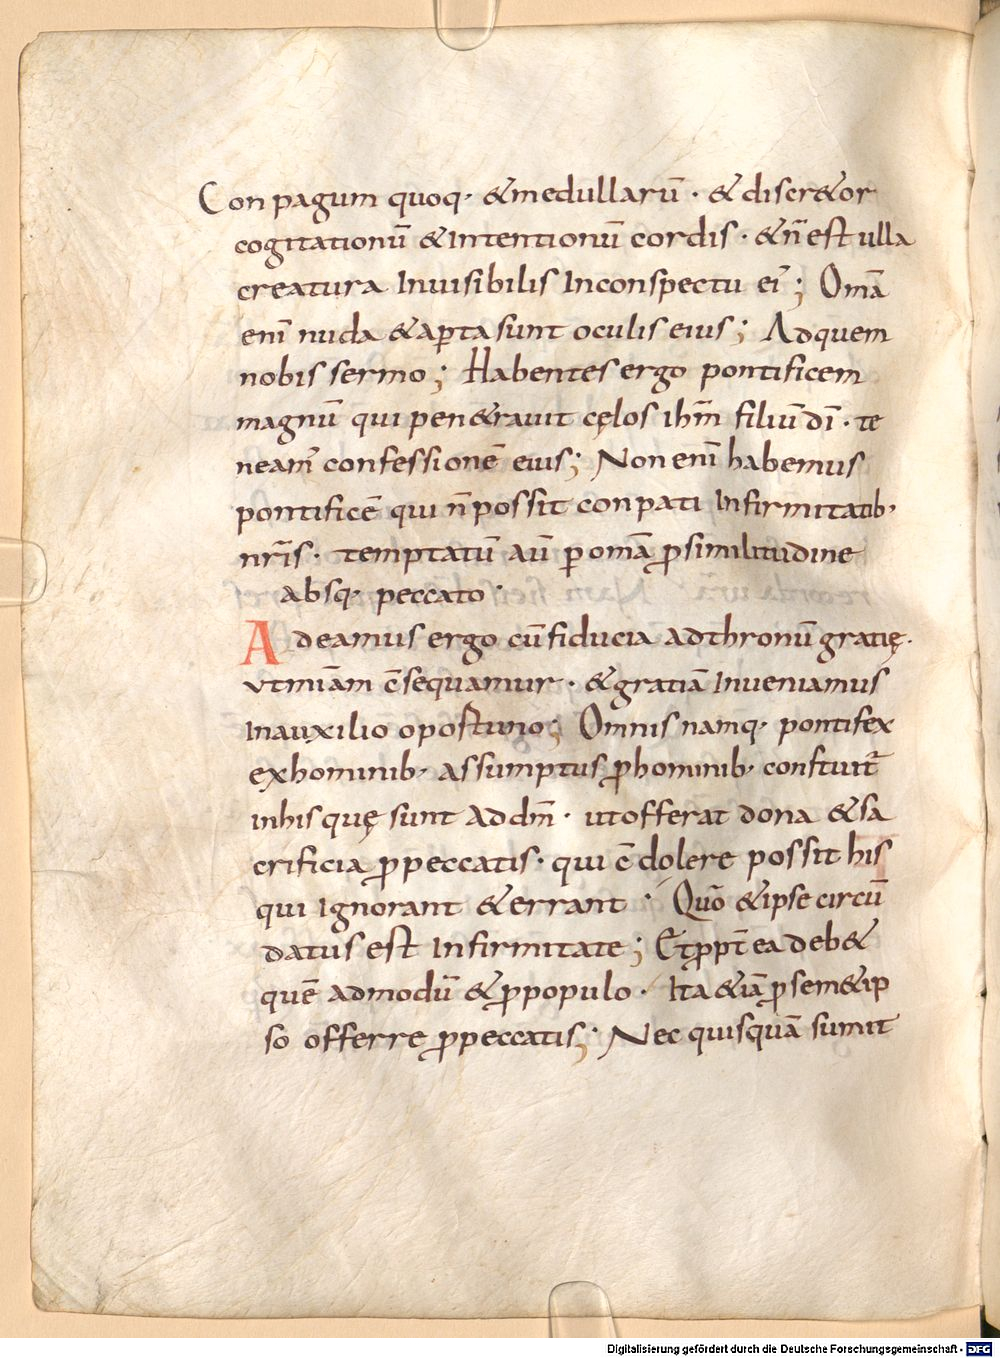 Con pagum quoq· & medullarū · & discr&or
cogitationū & Intentionū cordis · & n̄ est ulla
creatura Inuisibilis Inconspectu ei᾿; Omā
enī nuda & aꝑta sunt oculis eius; Ad quem
nobis sermo; Habentes ergo pontificem
magnū qui pen&rauit cęlos ihm̄ filiū dī · te
neam̄ confessionē eius; Non enī habemus
pontificē qui n̄ possit conpati Infirmitatib·
nr̄is · temptatū aū ꝑ omā ꝓ similitudine
absq· peccato ·
Adeamus ergo cū fiducia ad thronū gratię·
ut miām c̄sequamur · & gratiā Inueniamus
In auxilio oportuno; Omnis namq· pontifex
ex hominib· assumptus ꝓ hominib· constuitr̄
in his quę sunt Ad dm̄ · ut offerat dona & sa
crificia ꝓ peccatis · qui c̄dolere possit his
qui Ignorant & errant · Quō & ipse circū
datus est Infirmitate; Et ꝓpt̄ ea deb&
quē admodū & ꝓ populo · Ita &iā ꝓ sem&ip
so offerre ꝓ peccatis; Nec quisquā sumit
Digitalisierung gefördert durch die Deutsche Forschungsgemeinschaft - DFG